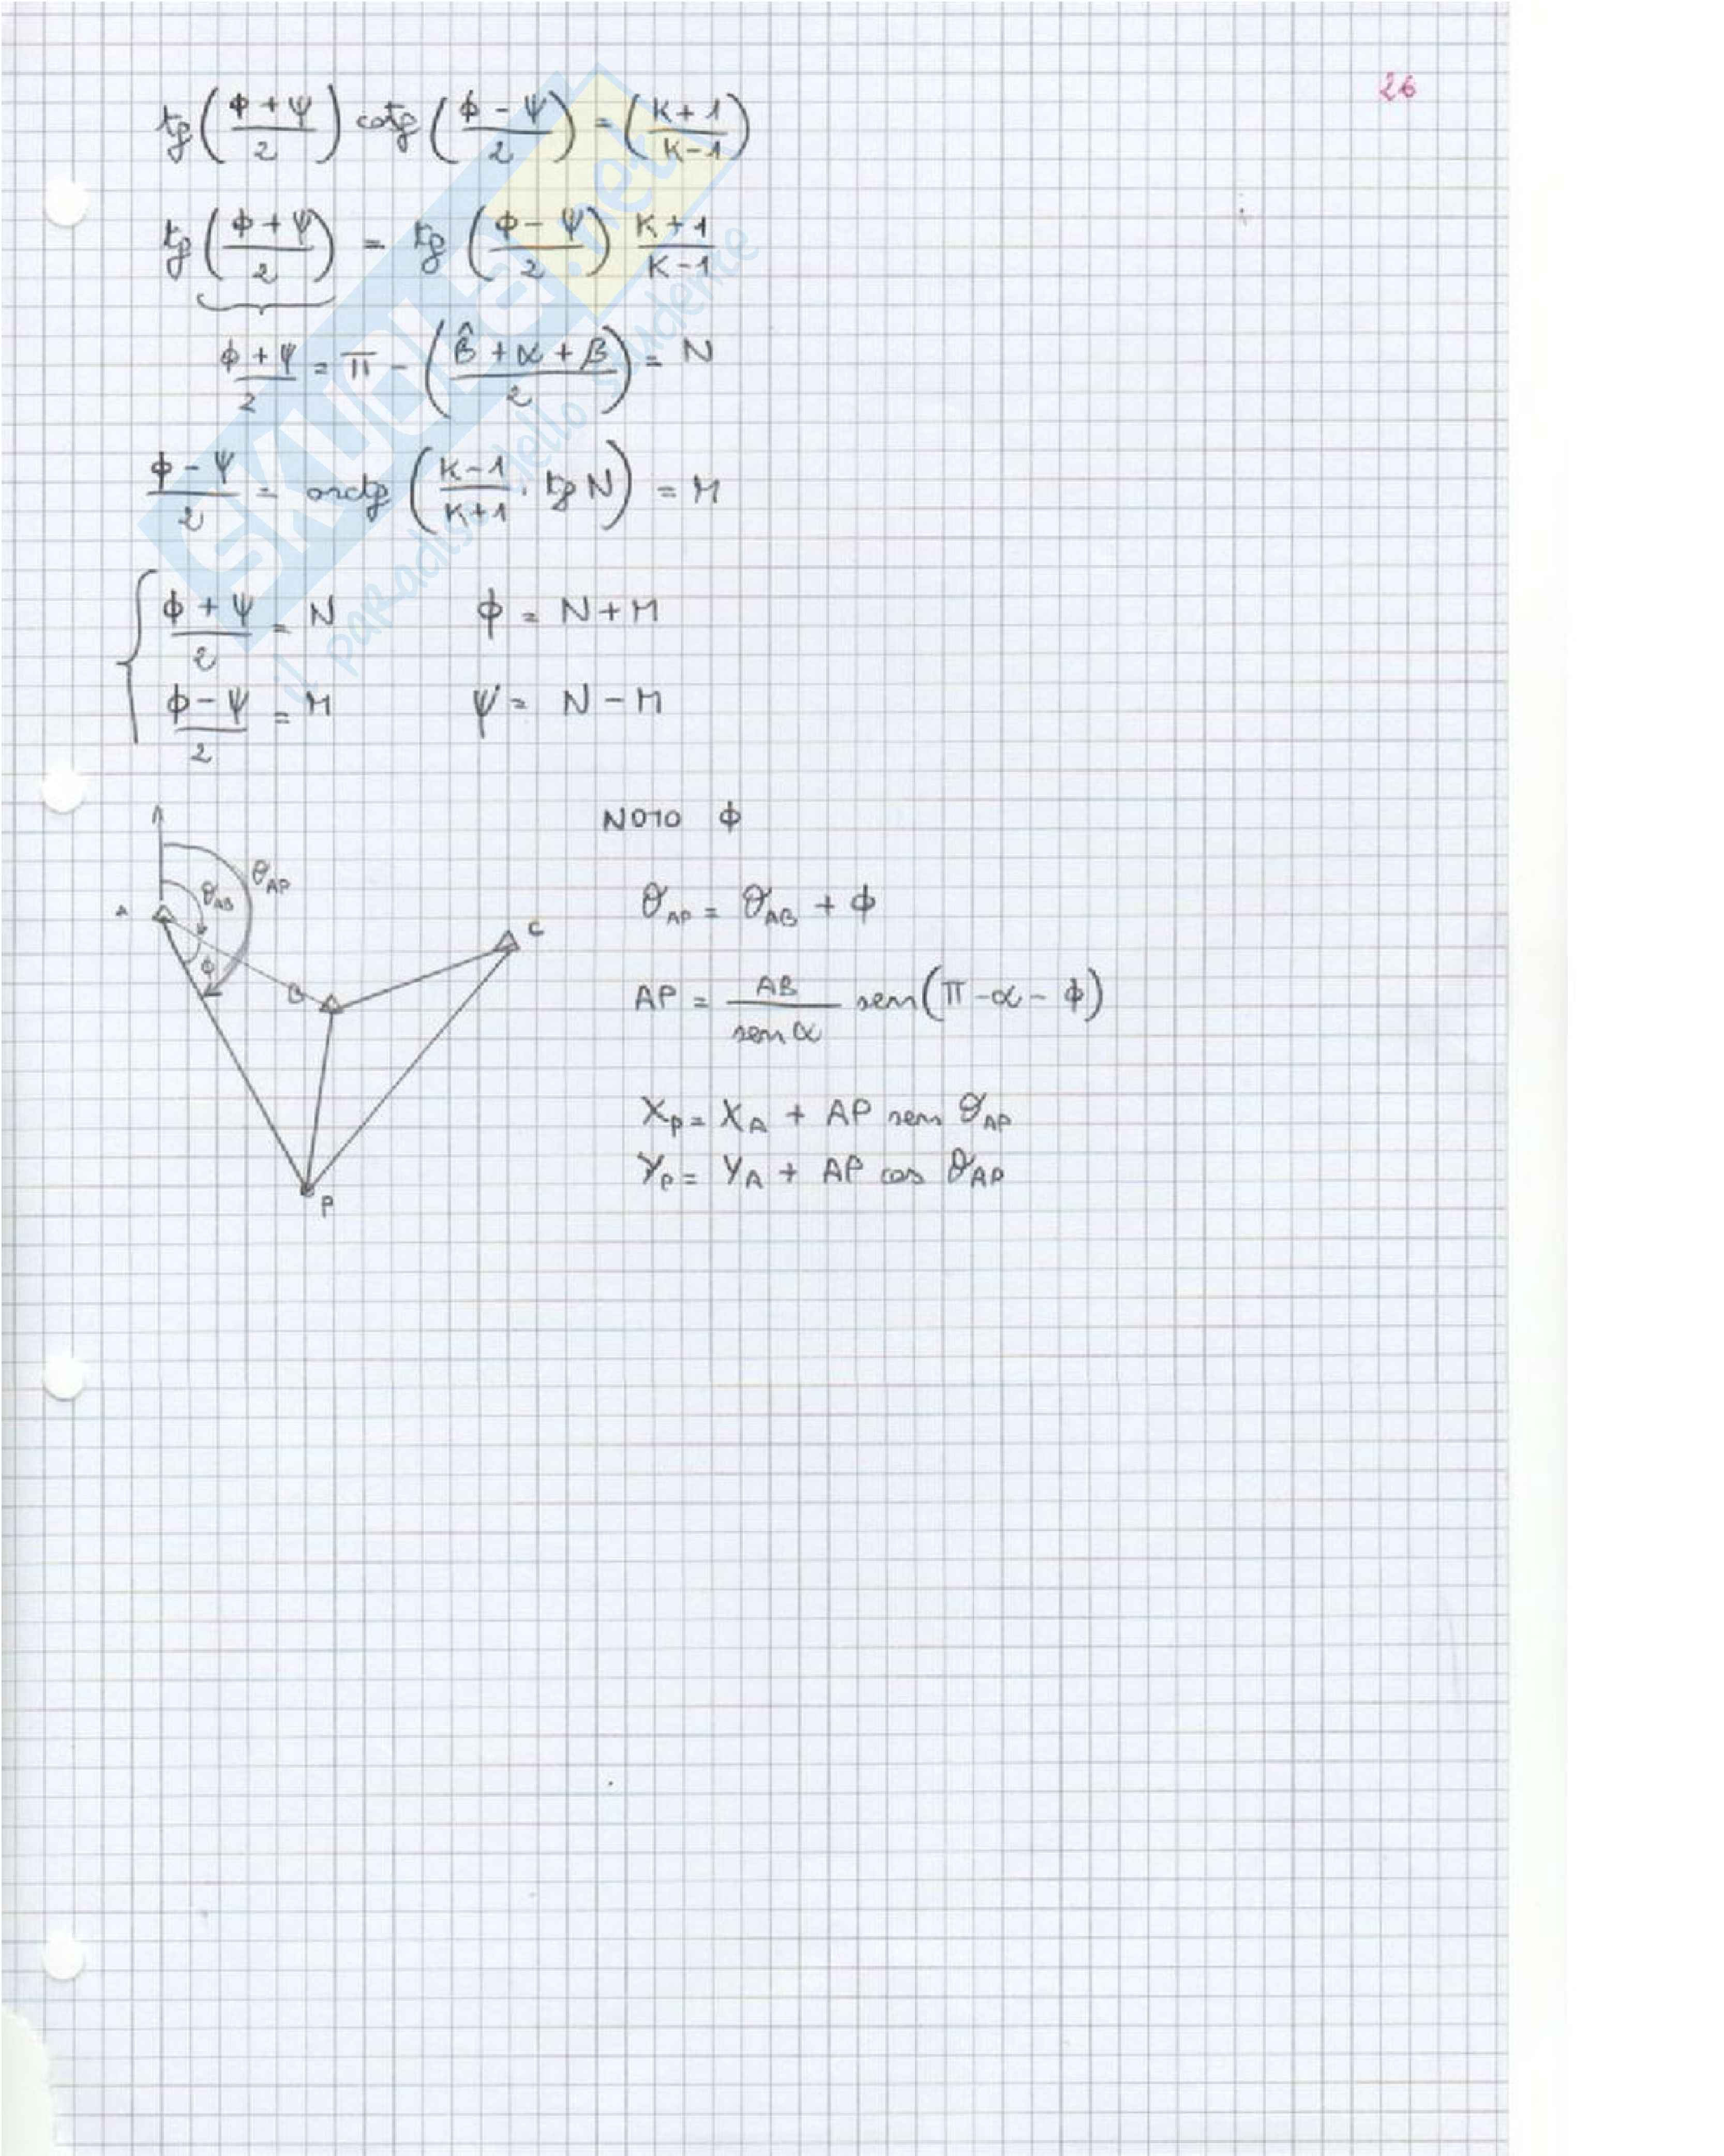 26
tg((ϕ + ψ)/2) cotg((ϕ - ψ)/2) = ((K+1)/(K-1))
tg((ϕ + ψ)/2) = tg((ϕ - ψ)/2) (K+1)/(K-1)
(ϕ + ψ)/2 = π - ((B̂ + α + β)/2) = N
(ϕ - ψ)/2 = arctg((K-1)/(K+1) · tg N) = M
(ϕ + ψ)/2 = N ϕ = N + M
(ϕ - ψ)/2 = M ψ = N - M
NOTO ϕ
θAP
θAB
A
C
ϕ
B
P
θAP = θAB + ϕ
AP = AB/sen α sen(π - α - ϕ)
XP = XA + AP sen θAP
YP = YA + AP cos θAP
SKUOLA.net
il paradiso dello studente